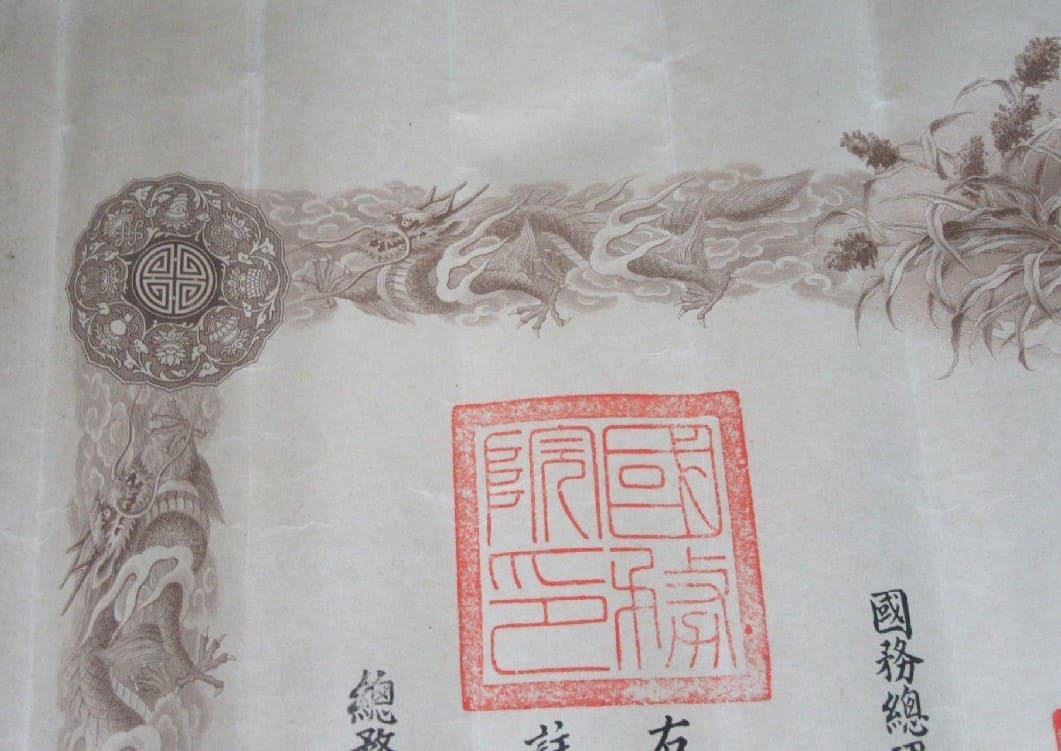 國務總
國務
院印
右
註
總務